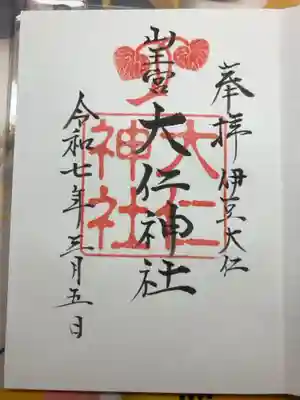 奉拝 伊豆大仁
山王宮 大仁神社
大仁
神社
令和七年三月五日